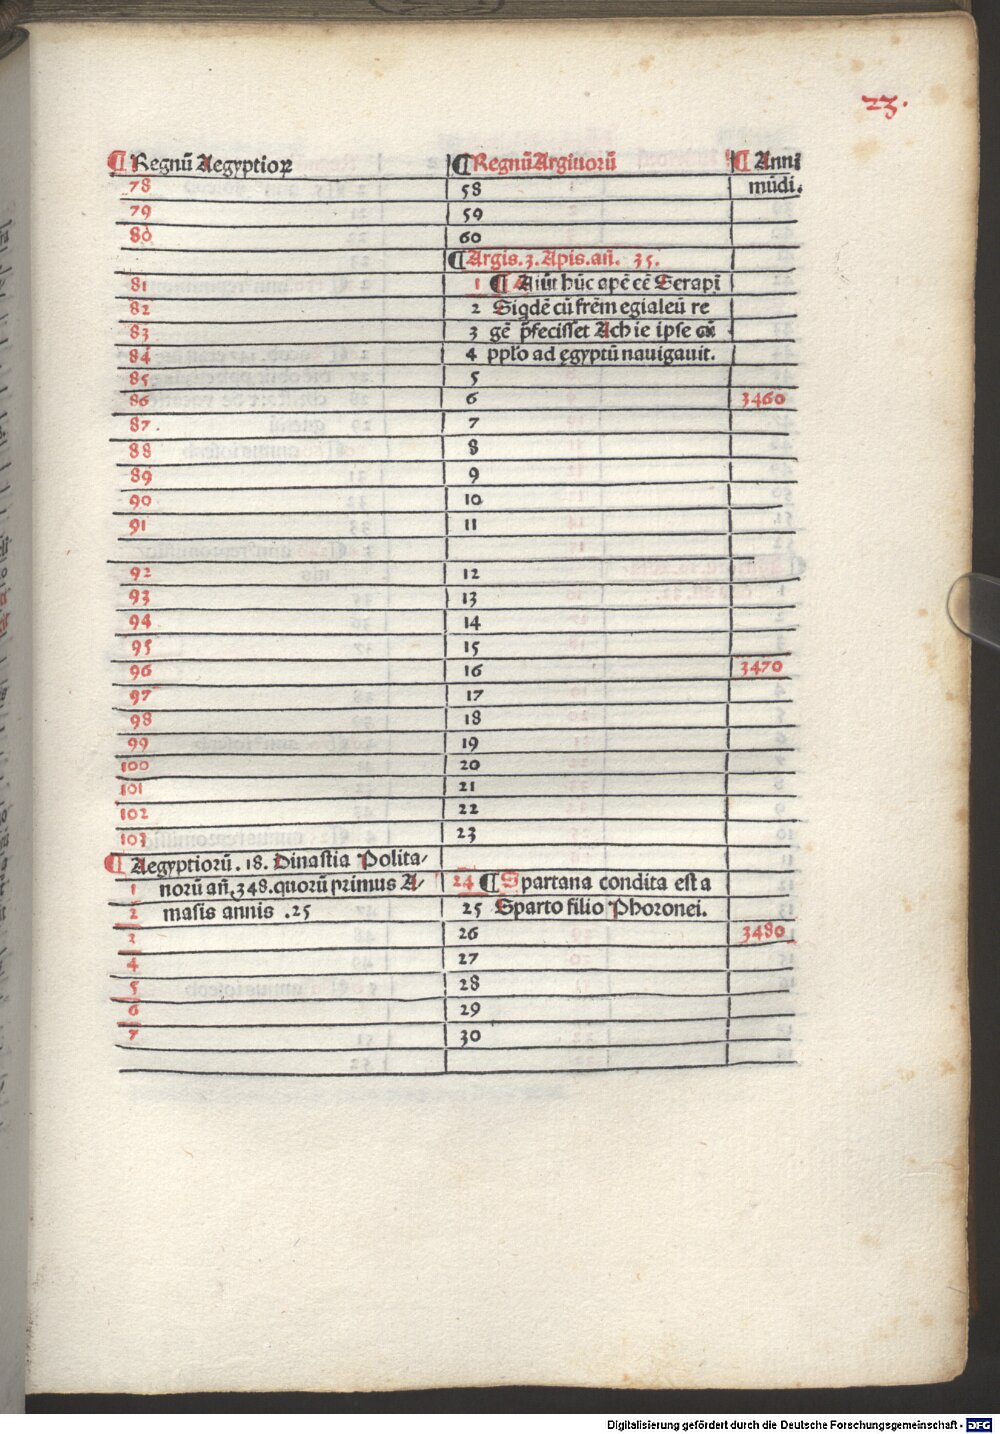 23.
¶ Regnū Aegyptioꝝ ¶ Regnū Argiuorū ¶ Anni
78 58 mūdi.
79 59
80 60
¶ Argis. 3. Apis. añ. 35.
81 1 ¶ Aiūt hūc apē eē Serapī
82 2 Siqdē cū frēm egialeū re
83 3 gē p̄fecisset Achaie ipse cū
84 4 pplo ad egyptū nauigauit.
85 5
86 6 3460
87. 7
88 8
89 9
90 10
91 11
92 12
93 13
94 14
95 15
96 16 3470
97 17
98 18
99 19
100 20
101 21
102 22
103 23
¶ Aegyptiorū. 18. Dinastia Polita/
1 norū añ. 348. quorū primus A/ 24 ¶ Spartana condita est a
2 masis annis .25 25 Sparto filio Phoronei.
3 26 3480
4 27
5 28
6 29
7 30
Digitalisierung gefördert durch die Deutsche Forschungsgemeinschaft - DFG